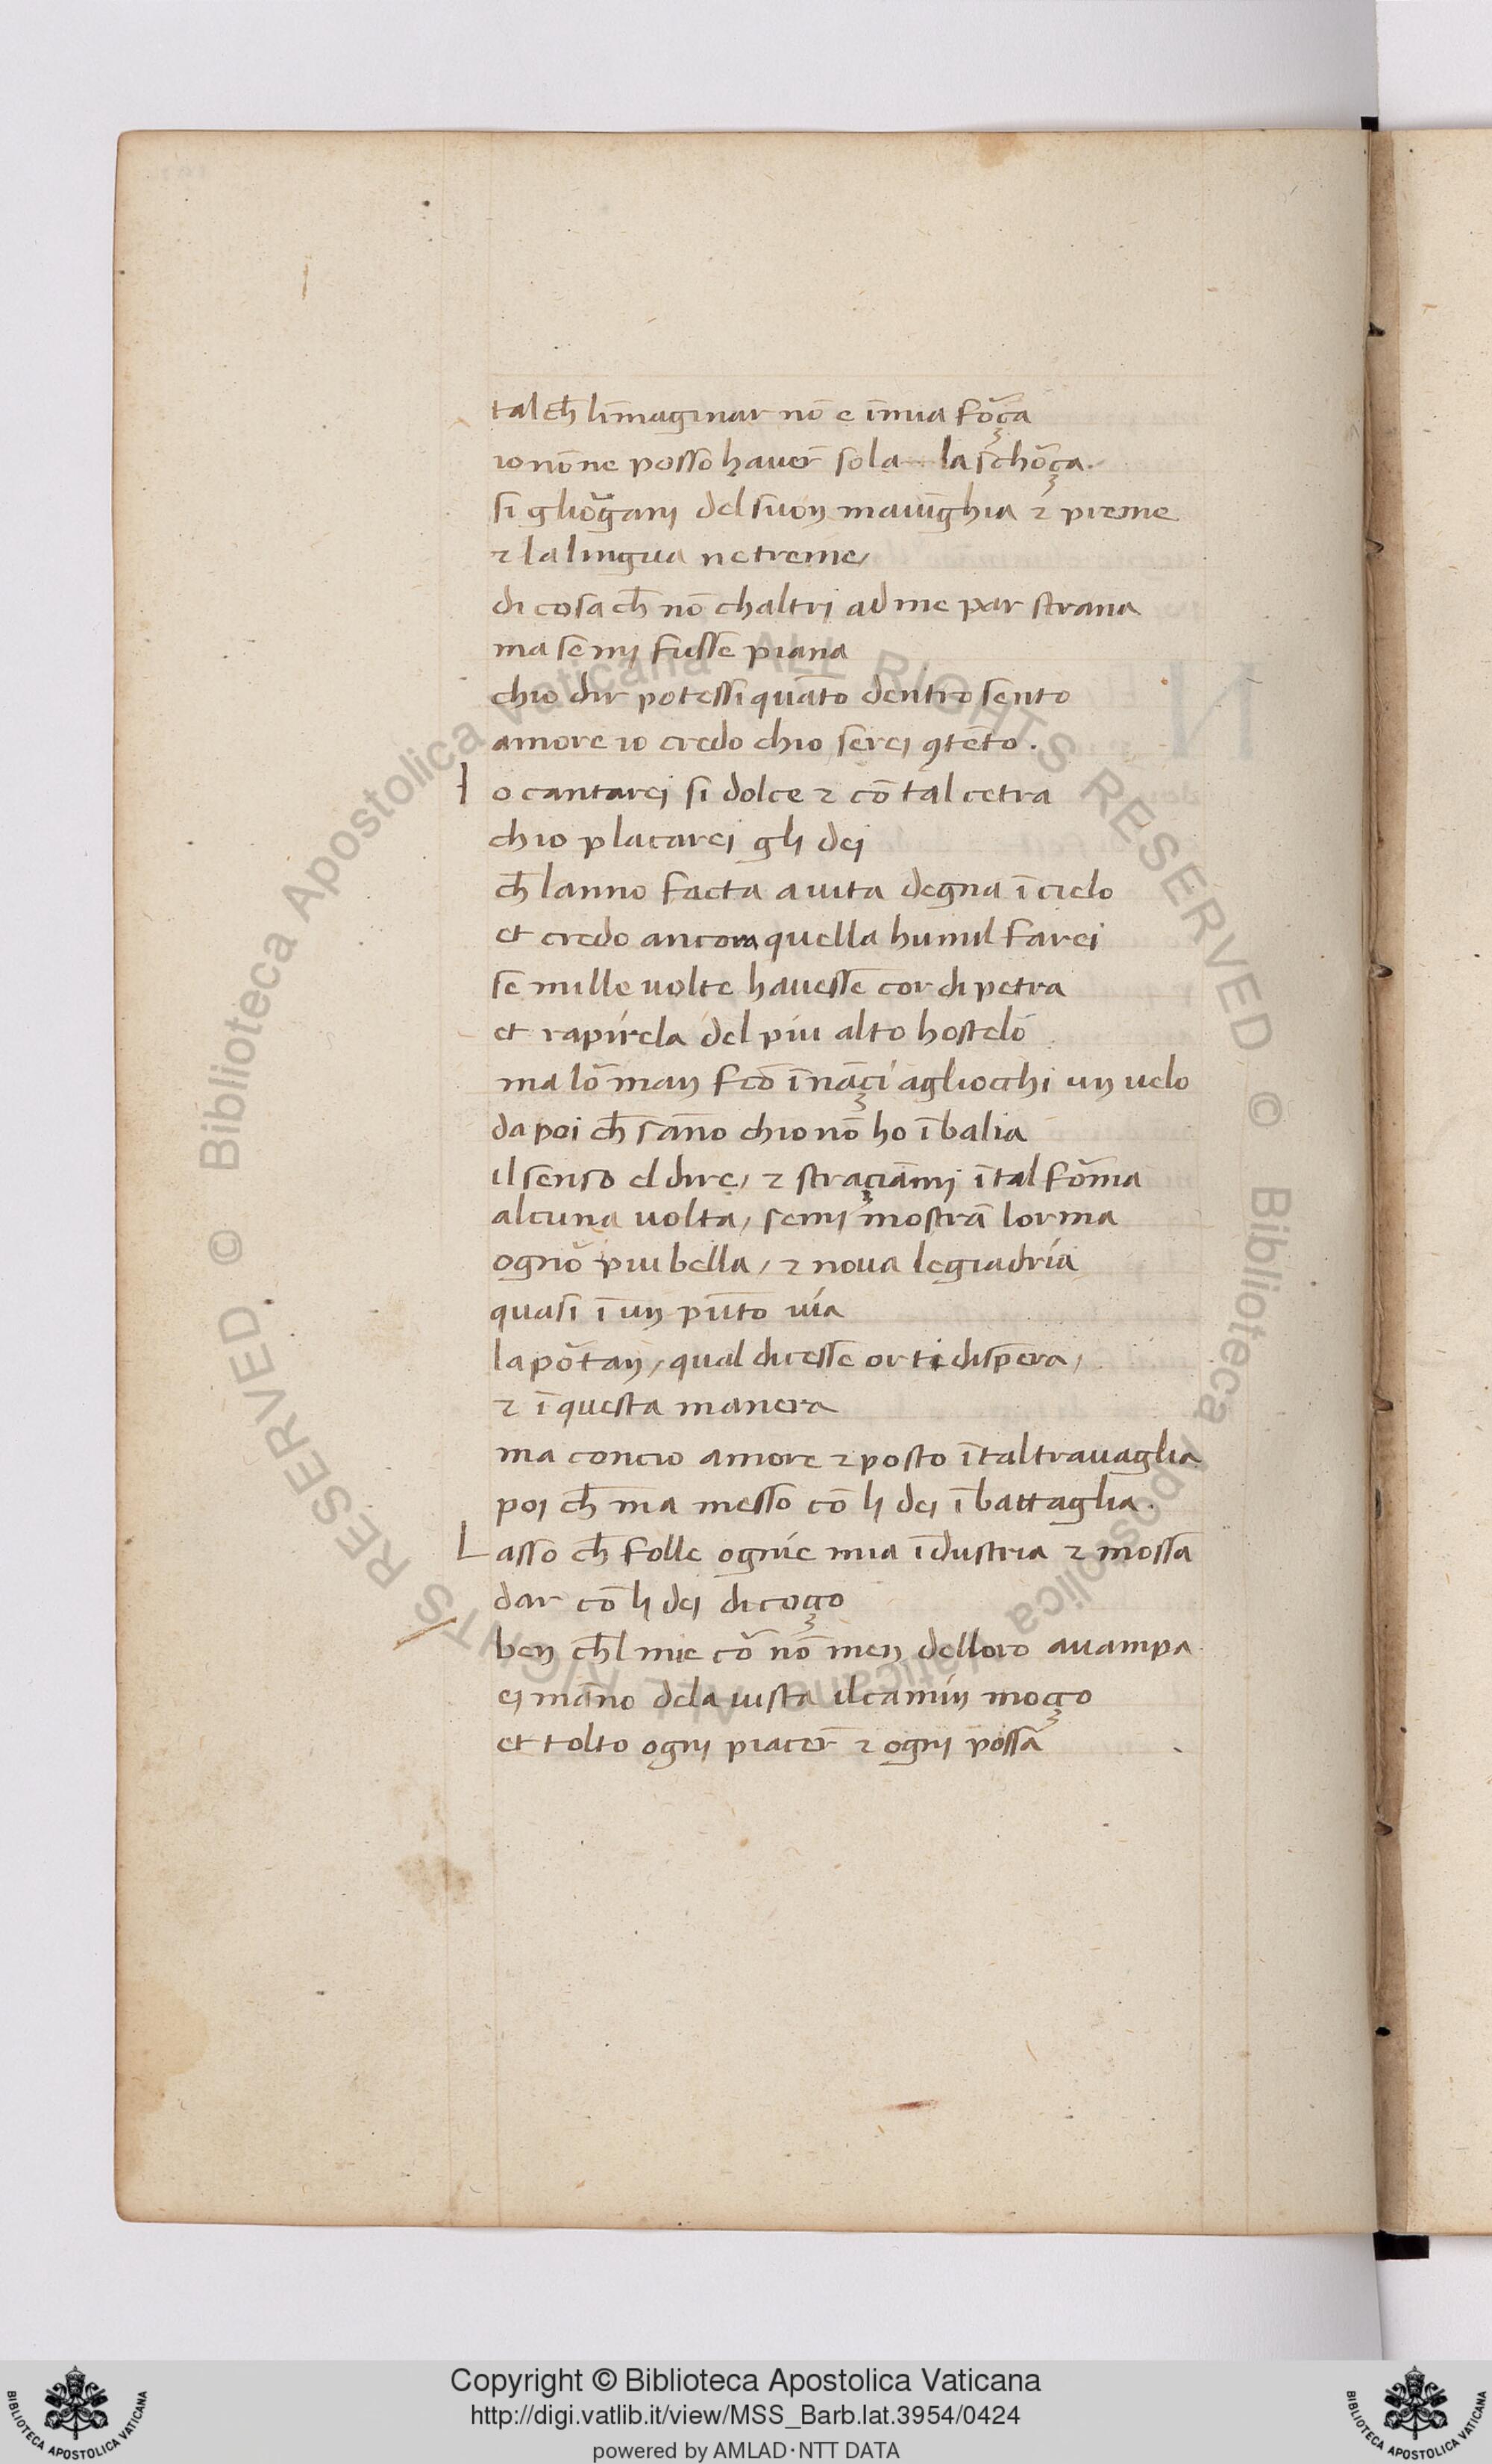 tal ch̄ līmaginar nō e īmia fōr̄ça
io nō ne posso hauer̄ sola la schōr̄ça.
si gliōr̄gani del suon mauīghia ⁊ preme
⁊ la lingua ne treme/
di cosa ch̄ nō chaltri ad me par strana
ma se mi fusse piana
chio dir potessi quāto dentro sento
amore io credo chio serei ꝯtēto.
Io cantarei si dolce ⁊ cō tal cetra
chio placarei gli dei
ch̄ lanno facta a uita degna ī cielo
et credo ancora quella humil farei
se mille uolte hauesse cor di petra
et rapirela del piu alto hostelo
ma lō man fcō īnāçi agliocchi un uelo
da poi ch̄ sāno chio nō ho ī balia
il senso el dire/ ⁊ straçiāmi ī tal fōma
alcuna uolta/ semi mostrā lorma
ogniō piu bella/ ⁊ noua legiadria
quasi ī un pūto uia
la pōtan/ qual dicesse or ti dispera/
⁊ ī questa manera
ma concio amore ⁊ posto ī tal trauaglia
poi ch̄ mā messo cō li dei ī battaglia.
Lasso ch̄ folle ognie mia īdustria ⁊ mossa
dar cō li dei di coçço
ben ch̄l mie cō nō men delloro auampa
ei māno dela uista il camin moçço
et tolto ogni piacer̄ ⁊ ogni possa
© Biblioteca Apostolica Vaticana ALL RIGHTS RESERVED
© Biblioteca Apostolica Vaticana ALL RIGHTS RESERVED
Copyright © Biblioteca Apostolica Vaticana
http://digi.vatlib.it/view/MSS_Barb.lat.3954/0424
powered by AMLAD·NTT DATA
BIBLIOTECA APOSTOLICA VATICANA
BIBLIOTECA APOSTOLICA VATICANA